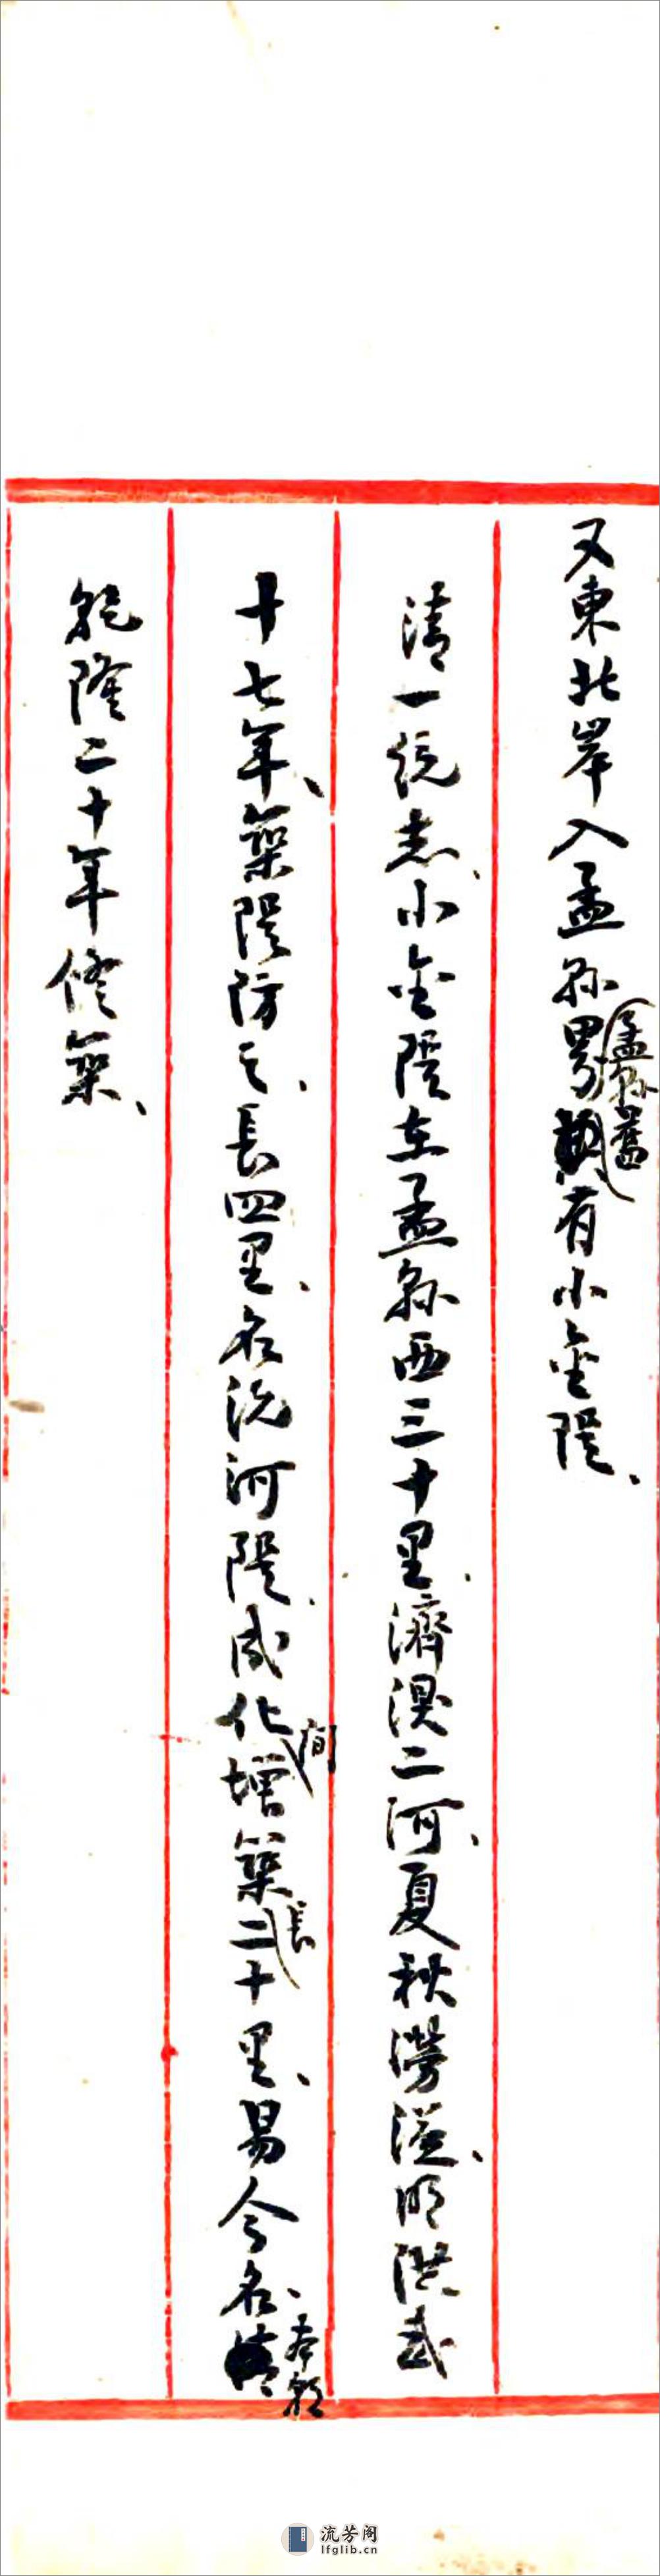 又東北岸入孟縣界孟縣舊有小金隄、
清一統志、小金隄在孟縣西三十里、濟溴二河、夏秋澇溢、明洪武
十七年、築隄防之、長四里、名沇河隄、成化間增築長二十里、易今名、本朝
乾隆二十年修築、
流芳阁
lfglib.cn